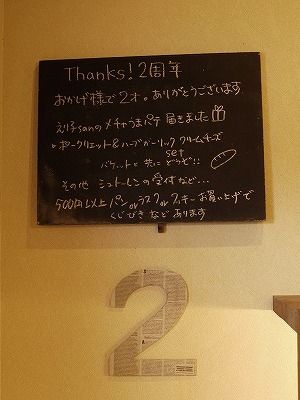 Thanks! 2周年
おかげ様で2才。ありがとうございます
えり子sanのメチャうまパテ 届きました
・ポークリエット&ハーブガーリック クリームチーズ
set
バケットと共にどうぞ!!
その他 シュトーレンの受付など…
500円以上パン or ラスク or クッキーお買い上げで
くじびきなどあります
2